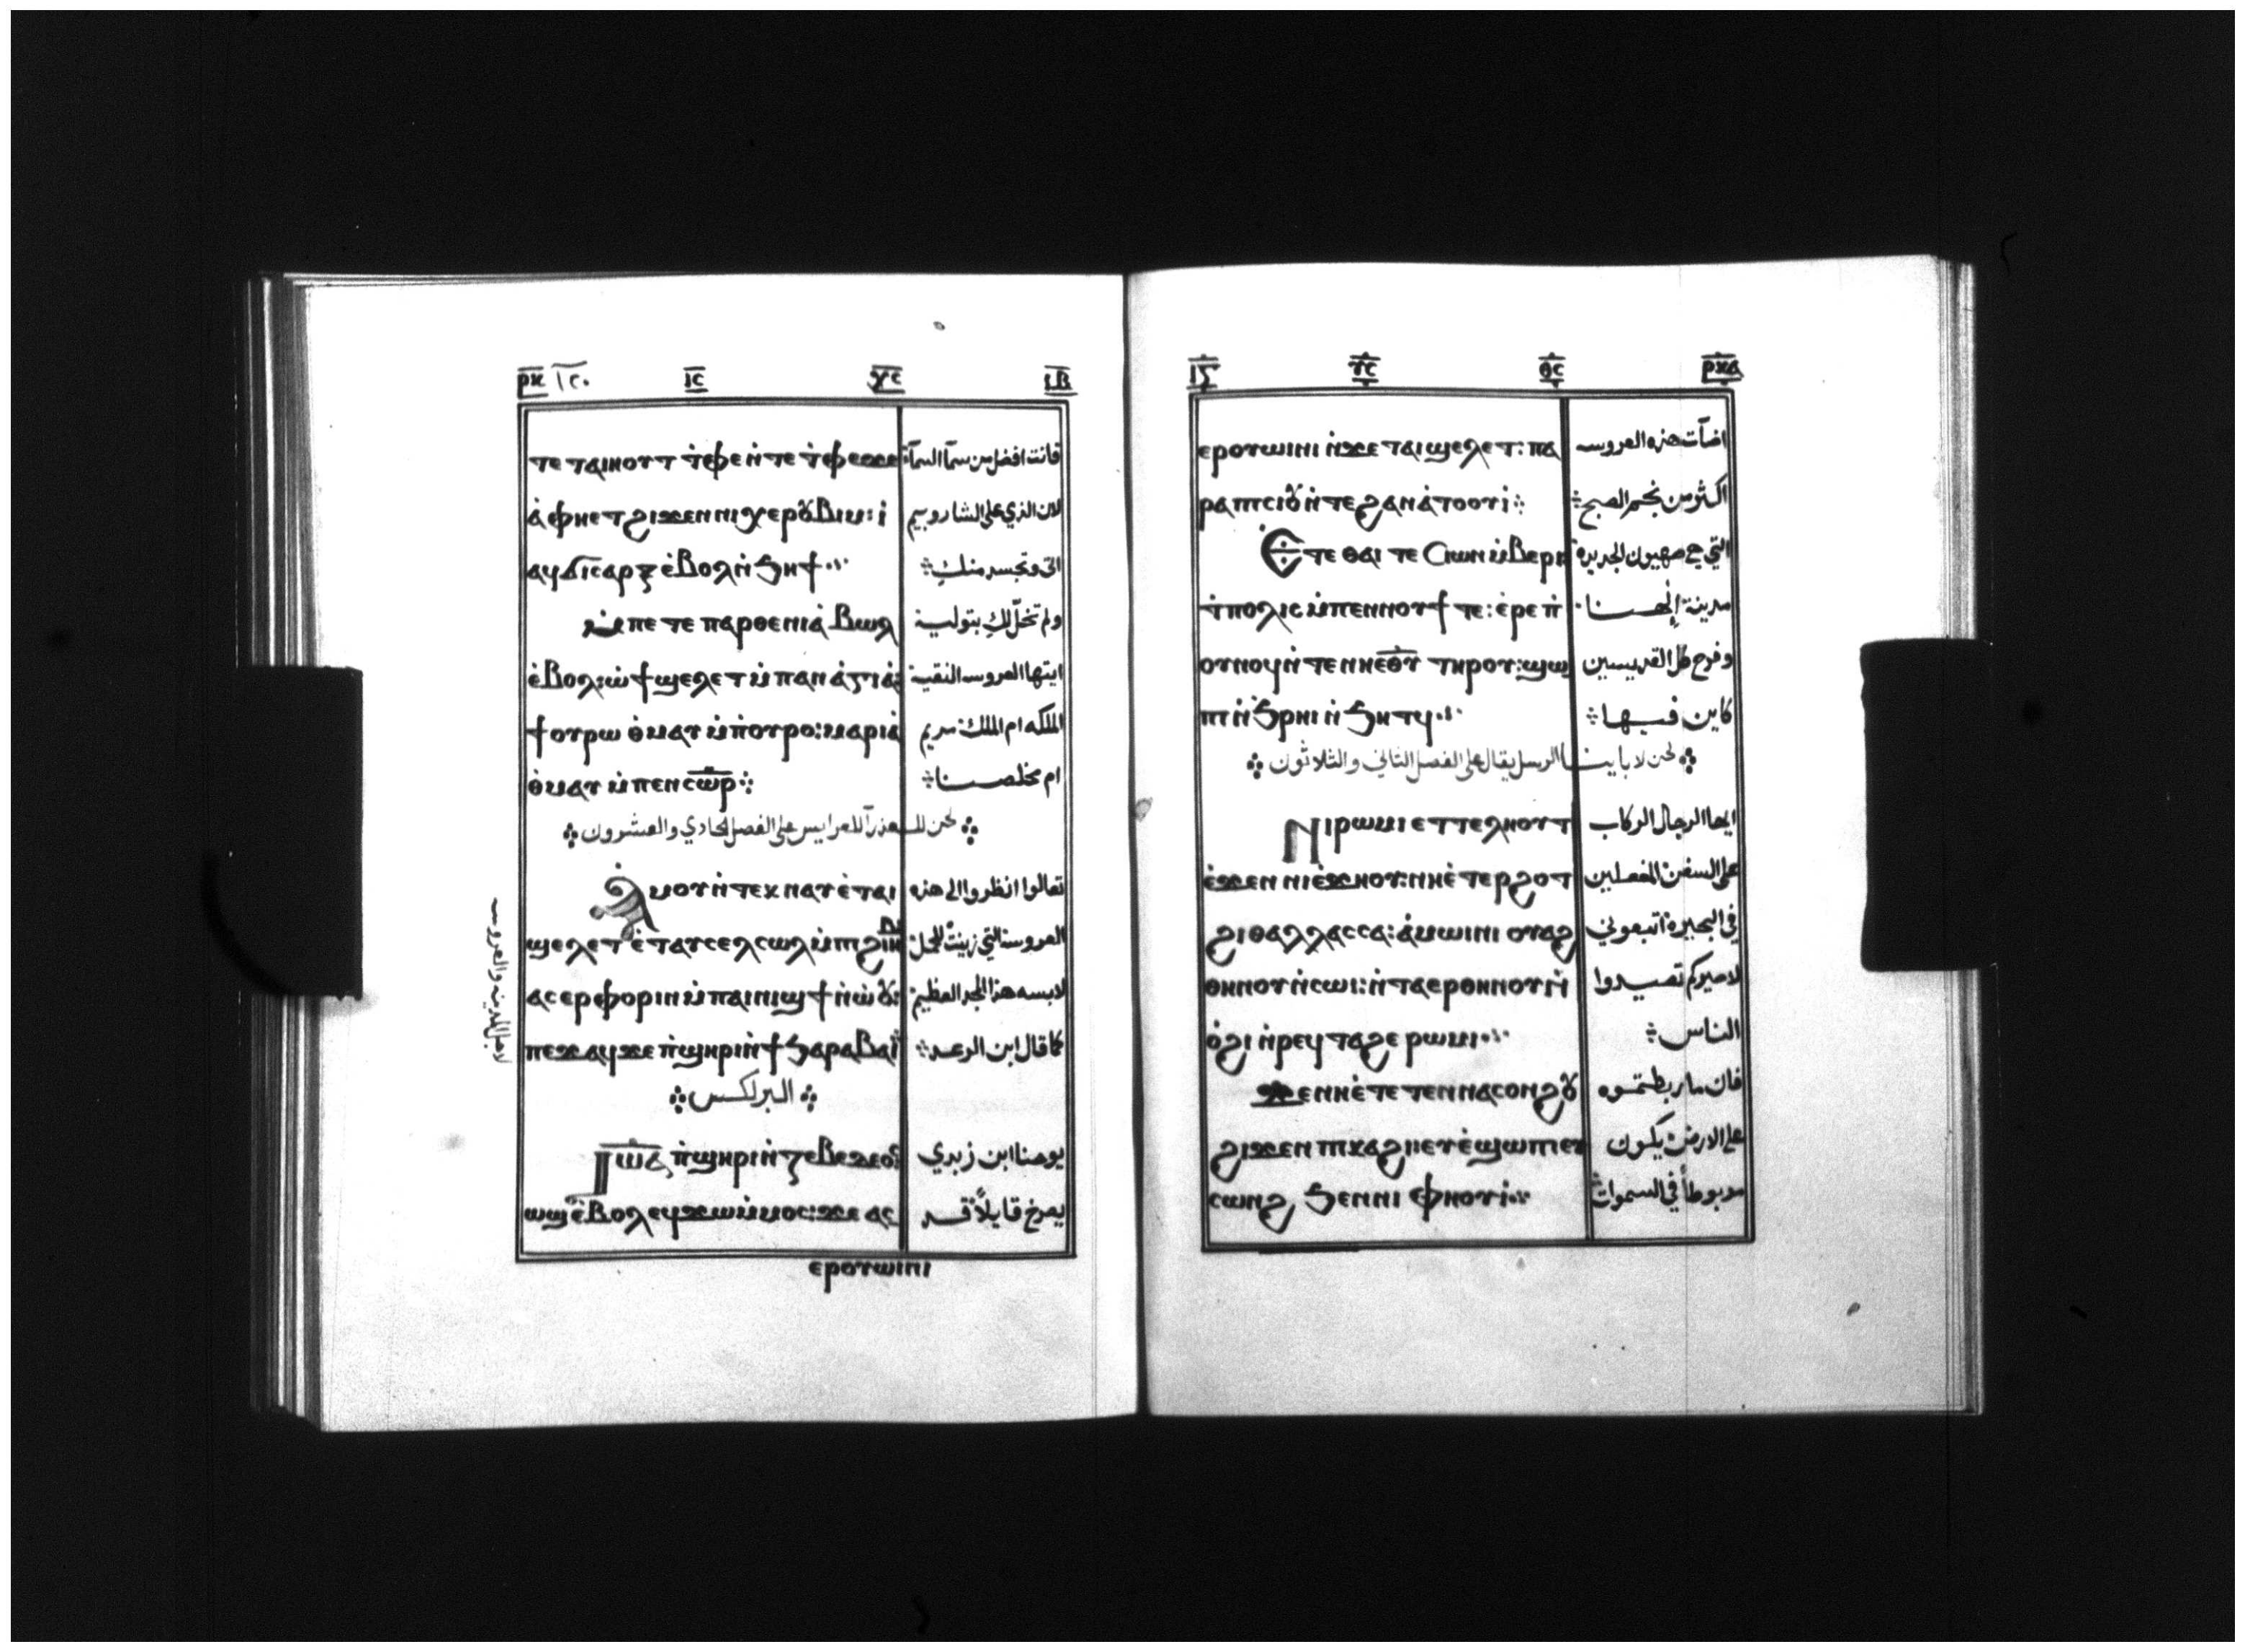 ⲣⲕ ١٢٠ ⲓⲥ ⲭⲥ ⲓⲃ
ⲧⲉ ⲧⲁⲓⲏⲟⲩⲧ ⲛ̀ⲧⲫⲉ ⲛ̀ⲧⲉ ⲧ̀ⲫⲉ ϫⲉ فانت افضل من سمآ السمآء
ⲁ̀ ⲫⲏⲉⲧϩⲓϫⲉⲛ ⲛⲓⲭⲉⲣⲟⲩⲃⲓⲙ: ⲓ̀ لان الذي على الشاروبيم
ⲁϥϭⲓⲥⲁⲣⲝ ⲉ̀ⲃⲟⲗ ⲛ̀ϧⲏϯ اتى وتجسد منكِ
ⲙ̀ⲡⲉ ⲧⲉ ⲡⲁⲣⲑⲉⲛⲓⲁ̀ ⲃⲱⲗ ولم تخلّ لكِ بتولية
ⲉ̀ⲃⲟⲗ: ⲱ̀ ϯϣⲉⲗⲉⲧ ⲙ̀ⲡⲁⲛⲁ̀ⲅⲓⲁ̀: ايتها العروسه النقية
ϯⲟⲩⲣⲱ ⲑ̀ⲙⲁⲩ ⲙ̀ⲡ̀ⲟⲩⲣⲟ: ⲙⲁⲣⲓⲁ̀ الملكه ام الملك مريم
ⲑ̀ⲙⲁⲩ ⲙ̀ⲡⲉⲛⲥⲱⲣ ام مخلصنا
لحن للعذرآ للعرايس على الفصل الحادي والعشرون
ⲁ̀ⲙⲟⲩ ⲛ̀ⲧⲉⲭⲛⲁⲩ ⲉ̀ⲧⲁⲓ تعالوا انظروا الى هذه
ϣⲉⲗⲉⲧ ⲉ̀ⲧⲁⲩⲥⲉⲗⲥⲱⲗ ⲙ̀ⲡϩⲓⲏⲃ العروسة التي زينت للحمل
ⲁⲥⲉⲣⲫⲟⲣⲓⲛ ⲙ̀ⲡⲁⲓⲛⲓϣϯ ⲛ̀ⲱ̀ⲟⲩ: لابسه هذا المجد العظيم
ⲡⲉϫⲁϥ ϫⲉ ⲡ̀ϣⲏⲣⲓ ⲛ̀ϯϧⲁⲣⲁⲃⲁⲓ كما قال ابن الرعد
البرلكس
ⲓⲱⲁ ⲡ̀ϣⲏⲣⲓ ⲛ̀ⲍⲉⲃⲉⲇⲉⲟⲥ يوحنا ابن زبدي
ⲱϣ ⲉ̀ⲃⲟⲗ ⲉϥϫⲱ ⲙ̀ⲙⲟⲥ: ϫⲉ ⲁⲥ يصرخ قايلاً قد
ⲉⲣⲟⲩⲱⲓⲛⲓ
لاجل المدينه والعروسه
ⲓⲥ ⲩⲥ ⲑⲥ ⲣⲕⲁ
ⲉⲣⲟⲩⲱⲓⲛⲓ ⲛ̀ϫⲉ ⲧⲁⲓϣⲉⲗⲉⲧ: ⲡⲁ اضآت هذه العروسه
ⲣⲁ ⲡⲓⲥⲓⲟⲩ ⲛ̀ⲧⲉ ϩⲁⲛⲁ̀ⲧⲟⲟⲩⲓ̀ اكثر من نجم الصبح
ⲉ̀ⲧⲉ ⲑⲁⲓ ⲧⲉ ⲥⲓⲱⲛ ⲙ̀ⲃⲉⲣⲓ التي هي صهيون الجديدة
ⲧ̀ⲡⲟⲗⲓⲥ ⲙ̀ⲡⲉⲛⲛⲟⲩϯ ⲧⲉ: ⲉ̀ⲣⲉ ⲡ̀ مدينة إلهنا
ⲟⲩⲛⲟϥ ⲛ̀ⲧⲉ ⲛⲏⲉⲑⲩ ⲧⲏⲣⲟⲩ: ϣⲱ وفرح كل القديسين
ⲡⲓ ⲛ̀ϧⲣⲏⲓ ⲛ̀ϧⲏⲧϥ كاين فيها
لحن لاباينا الرسل يقال على الفصل الثاني والثلاثون
ⲛⲓⲣⲱⲙⲓ ⲉⲧⲧⲉⲗⲏⲟⲩⲧ ايها الرجال الركاب
ⲉ̀ϫⲉⲛ ⲛⲓⲉ̀ϫⲏⲟⲩ: ⲛⲏⲉ̀ⲧⲉⲣϩⲟⲧ على السفن
ϩⲓ ⲑⲁⲗⲗⲁⲥⲥⲁ: ⲁ̀ⲙⲱⲓⲛⲓ ⲟⲩⲁϩ في البحيرة اتبعوني
ⲑⲏⲛⲟⲩ ⲛ̀ⲥⲱⲓ: ⲛ̀ⲧⲁⲉⲣⲑⲏⲛⲟⲩ ⲛ̀ لاصيركم تصيدوا
ⲟ̀ϩⲓ ⲛ̀ⲣⲉϥⲧⲁϩⲉ ⲣⲱⲙⲓ الناس
ϫⲉ ⲛⲏⲉ̀ⲧⲉⲧⲉⲛⲛⲁⲥⲟⲛϩⲟⲩ فان ما ربطتموه
ϩⲓϫⲉⲛ ⲡⲓⲕⲁϩⲓ ⲉⲩⲉ̀ϣⲱⲡⲓ ⲉⲩ على الارض يكون
ⲥⲱⲛϩ ϧⲉⲛ ⲛⲓⲫⲏⲟⲩⲓ̀ مربوطاً في السموات